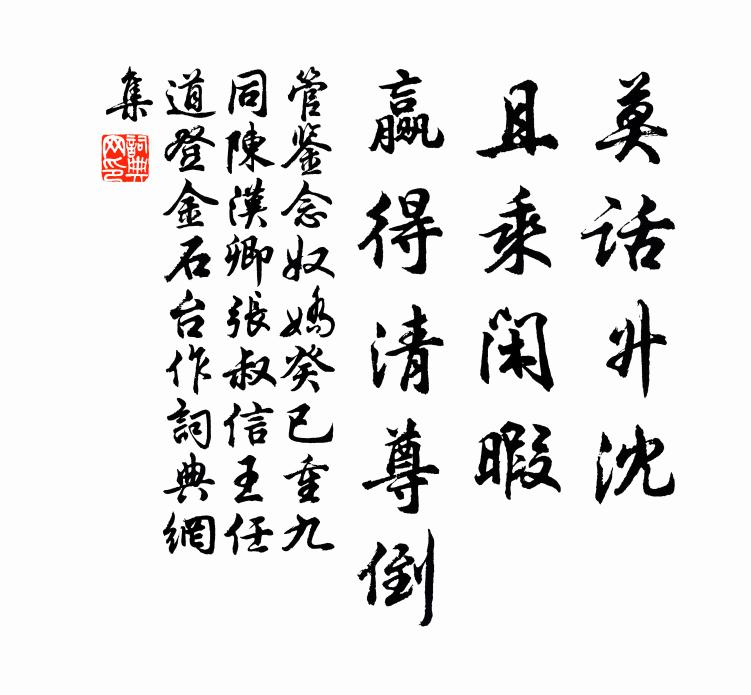 莫话升沈
且乘闲暇
赢得清尊倒
管鉴念奴娇癸巳重九
同陳漢卿張叔信王任
道登金石台作詞典網
集
詞典
网印